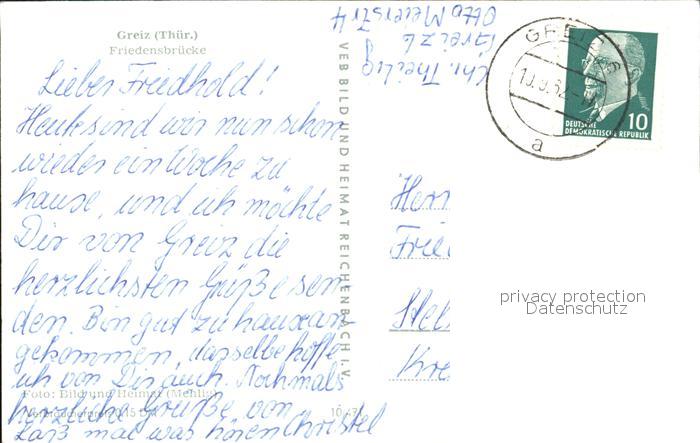 Greiz (Thür.)
Friedensbrücke
Lieber Friedhold!
Heute sind wir nun schon
wieder ein Woche zu
hause, und ich möchte
Dir von Greiz die
herzlichsten Grüße sen-
den. Bin gut zuhause an-
gekommen, dasselbe hoffe
ich von Dir auch. Nochmals
herzliche Grüße von
Laß mal was hören Christel
Foto: Bild und Heimat (Mehlig)
VEB BILD UND HEIMAT REICHENBACH I. V.
Chr. Theilig
Greiz
Otto Meierstr 4
GREIZ
a
10
DEUTSCHE
DEMOKRATISCHE REPUBLIK
Herr
Frie
Stel
Kre
privacy protection
Datenschutz